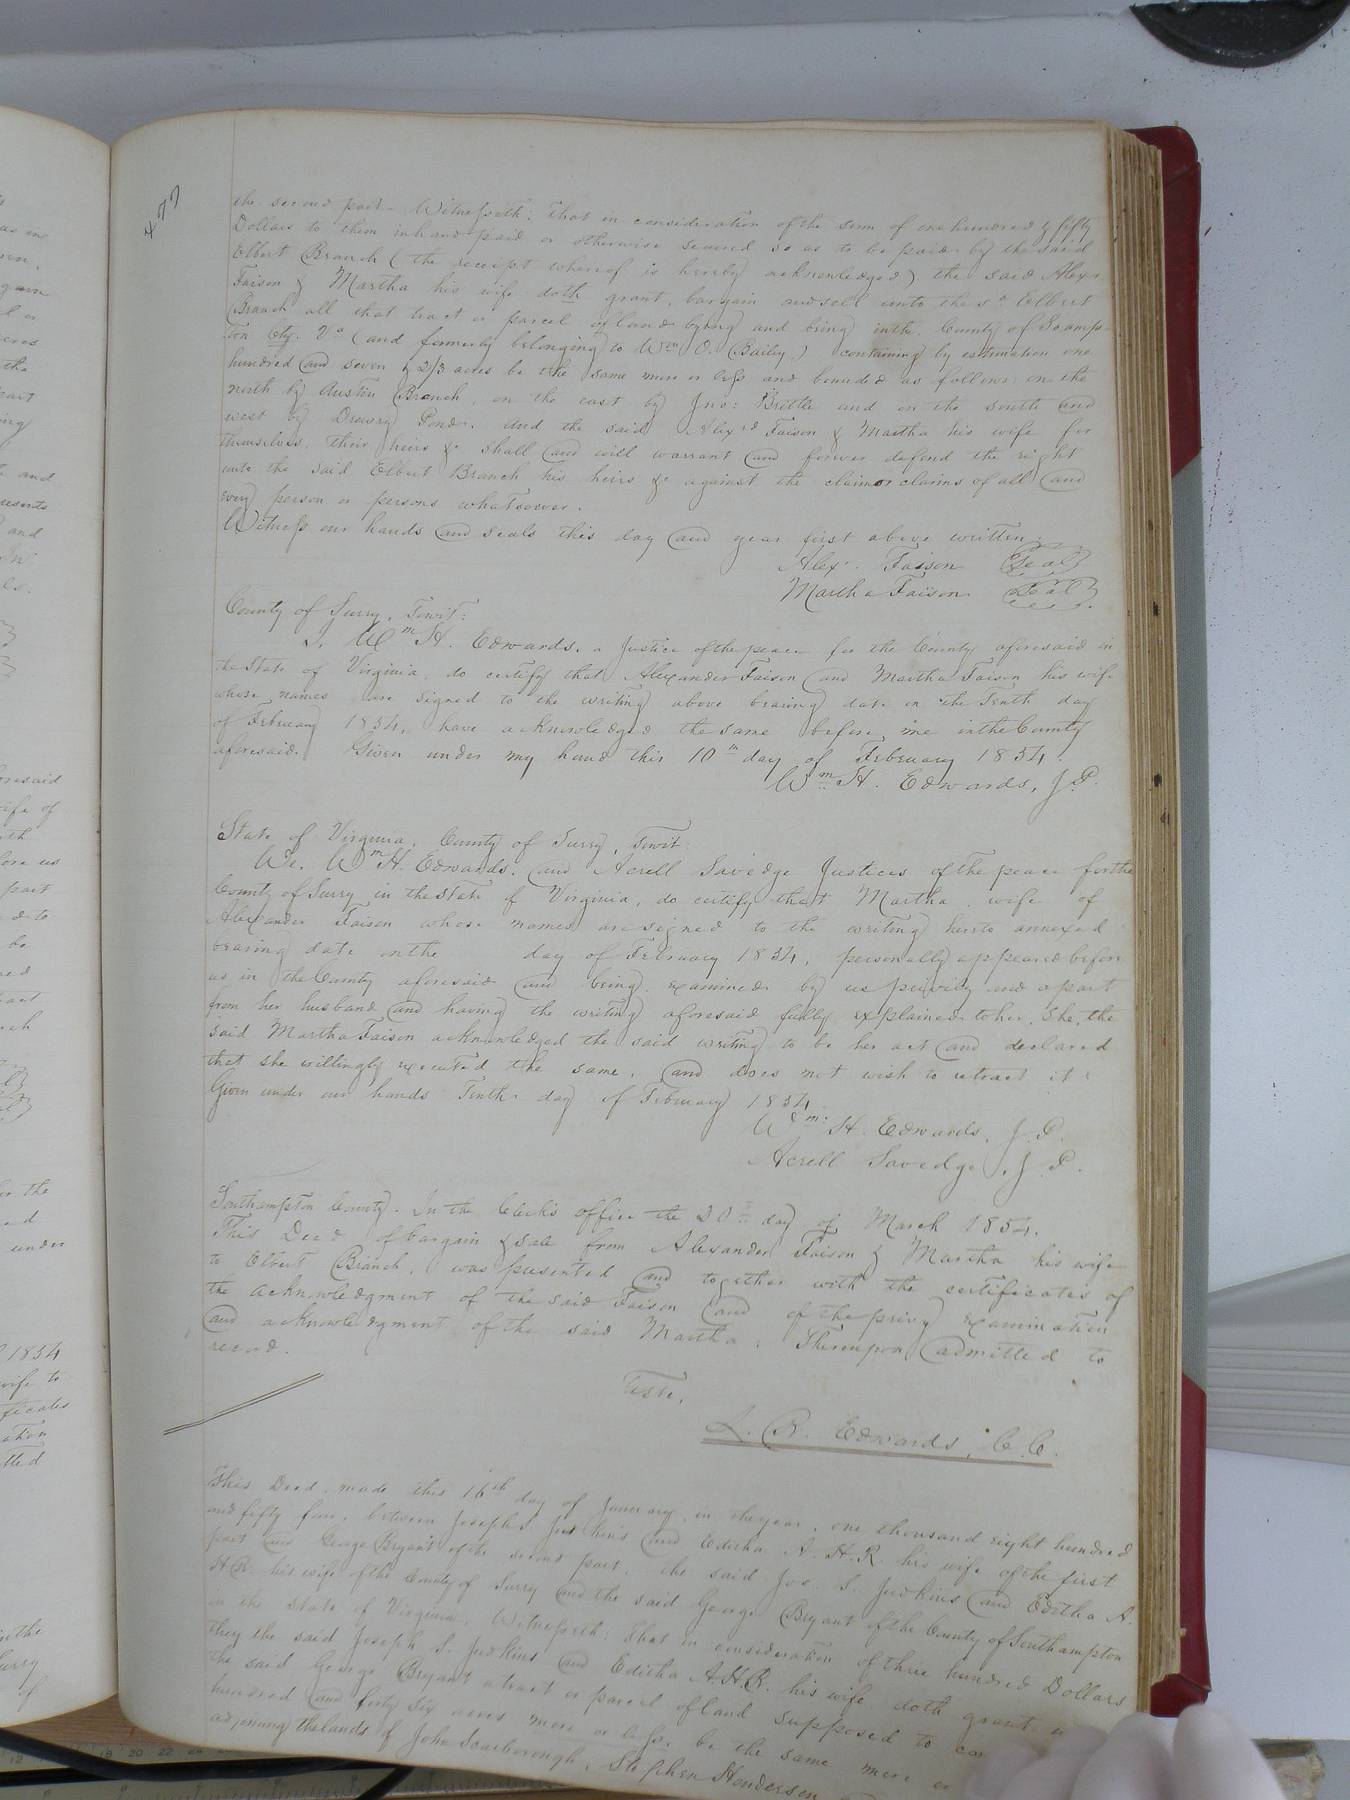 477
the second part. Witnesseth: That in consideration of the sum of one hundred & fifty
Dollars to them in hand paid or otherwise secured so as to be paid by the said
Elbert Branch (the receipt whereof is hereby acknowledged) the said Alexr
Faison & Martha his wife doth grant, bargain and sell unto the sd Elbert
Branch all that tract or parcel of land lying and being in the County of Southamp-
ton Cty. Va (and formerly belonging to Wm O. Bailey) containing by estimation one
hundred and seven & 2/3 acres be the same more or less and bounded as follows: on the
north by Austin Branch, on the east by Jno: Brittle and on the south and
west by Drewry Pond. And the said Alexrd Faison & Martha his wife for
themselves, their heirs &c shall and will warrant and forever defend the right
unto the said Elbert Branch his heirs &c against the claim or claims of all and
every person or persons whatsoever.
Witness our hands and seals this day and year first above written.
Alexr. Faison Seal
Martha Faison Seal
County of Surry, Towit:
I, Wm H. Edwards, a Justice of the peace for the County aforesaid in
the State of Virginia, do certify that Alexander Faison and Martha Faison his wife
whose names are signed to the writing above bearing date on the Tenth day
of February 1854, have acknowledged the same before me in the County
aforesaid. Given under my hand this 10th day of February 1854.
Wm H. Edwards, J.P.
State of Virginia, County of Surry, Towit:
We, Wm H. Edwards, and Acrell Savedge Justices of the peace for the
County of Surry in the State of Virginia, do certify that Martha wife of
Alexander Faison whose names are signed to the writing hereto annexed
bearing date on the day of February 1854, personally appeared before
us in the County aforesaid and being examined by us privily and apart
from her husband and having the writing aforesaid fully explained to her, She, the
said Martha Faison acknowledged the said writing to be her act and declared
that she willingly executed the same, and does not wish to retract it:
Given under our hands Tenth day of February 1854.
Wm: H. Edwards, J.P.
Acrell Savedge, J.P.
Southampton County. In the Clerk's office the 20th day of March 1854.
This Deed of bargain & sale from Alexander Faison & Martha his wife
to Elbert Branch, was presented and together with the certificates of
the acknowledgment of the said Faison and of the privy examination
and acknowledgment of the said Martha, Thereupon admitted to
record.
Teste,
L. R. Edwards, C.C.
This Deed, made this 16th day of January, in the year, one thousand eight hundred
and fifty four, between Joseph S. Judkins and Editha A. H. R. his wife of the first
part and George Bryant of the second part, the said Jos. S. Judkins and Editha A.
H. R. his wife of the County of Surry and the said George Bryant of the County of Southampton
in the State of Virginia, Witnesseth: That in consideration of three hundred Dollars
they the said Joseph S. Judkins and Editha A. H. R. his wife doth grant
the said George Bryant a tract or parcel of land supposed to
hundred and forty six acres more or less, be the same more or
adjoining the lands of John Scarborough, Stephen Henderson